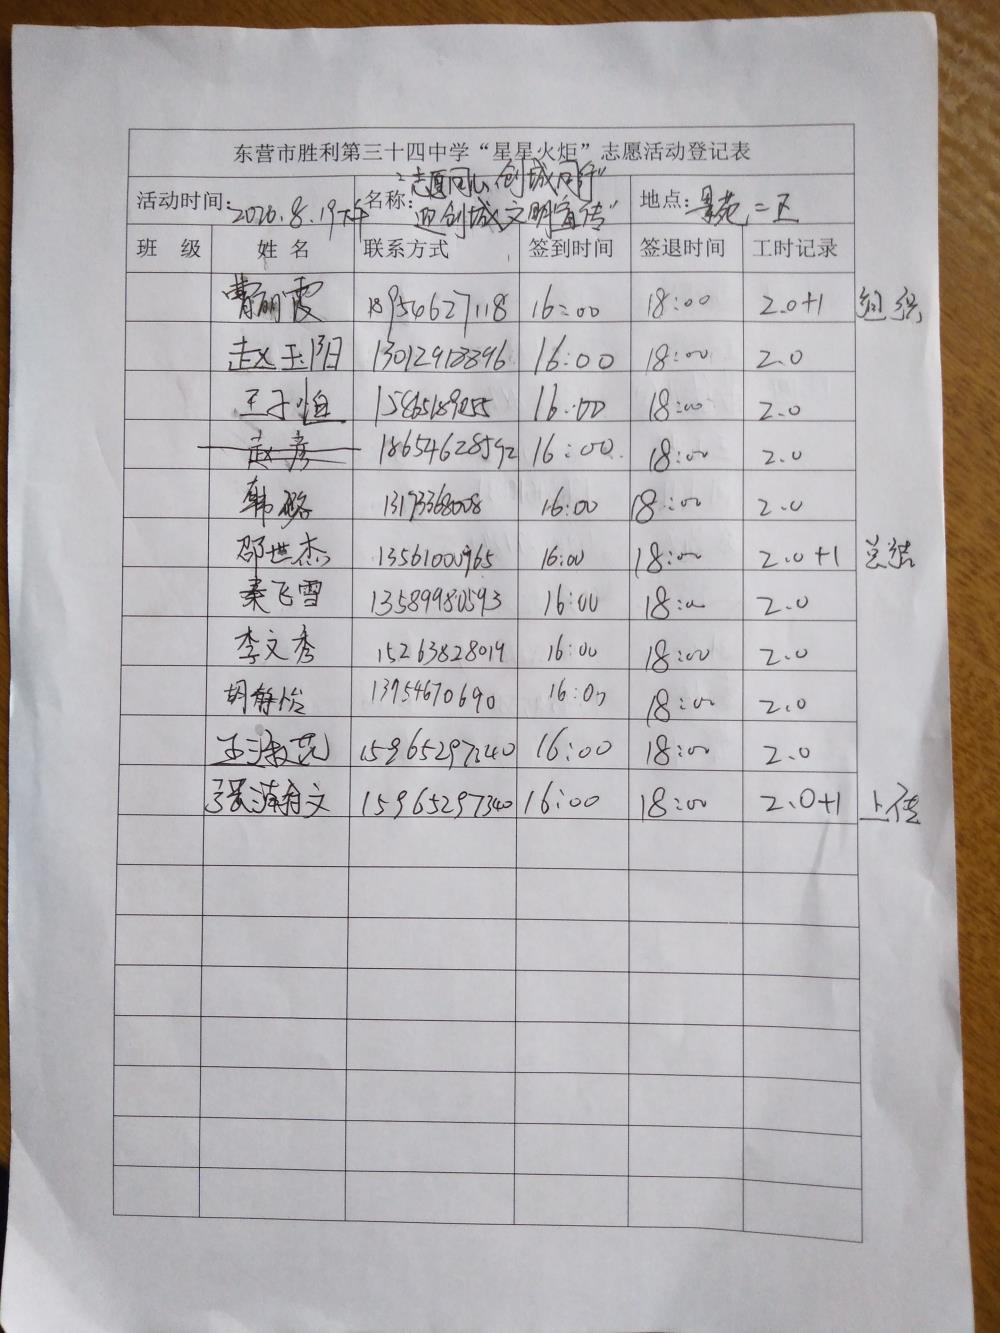 东营市胜利第三十四中学“星星火炬”志愿活动登记表
活动时间：2020.8.19下午 名称：“志愿同心 创城同行” 迎创城文明宣传” 地点：景苑二区
班 级 姓 名 联系方式 签到时间 签退时间 工时记录
曹丽霞 18954627118 16:00 18:00 2.0+1 组织
赵玉阳 13012918896 16:00 18:00 2.0
王子恒 16:00 18:00 2.0
赵彦 18654628592 16:00 18:00 2.0
韩璐 13173368008 16:00 18:00 2.0
邵世杰 13561000965 16:00 18:00 2.0+1 总结
秦飞雪 13589980593 16:00 18:00 2.0
李文秀 15263828019 16:00 18:00 2.0
胡静怡 13954670690 16:00 18:00 2.0
王淑范 15965297340 16:00 18:00 2.0
张瀚文 15965297340 16:00 18:00 2.0+1 上传